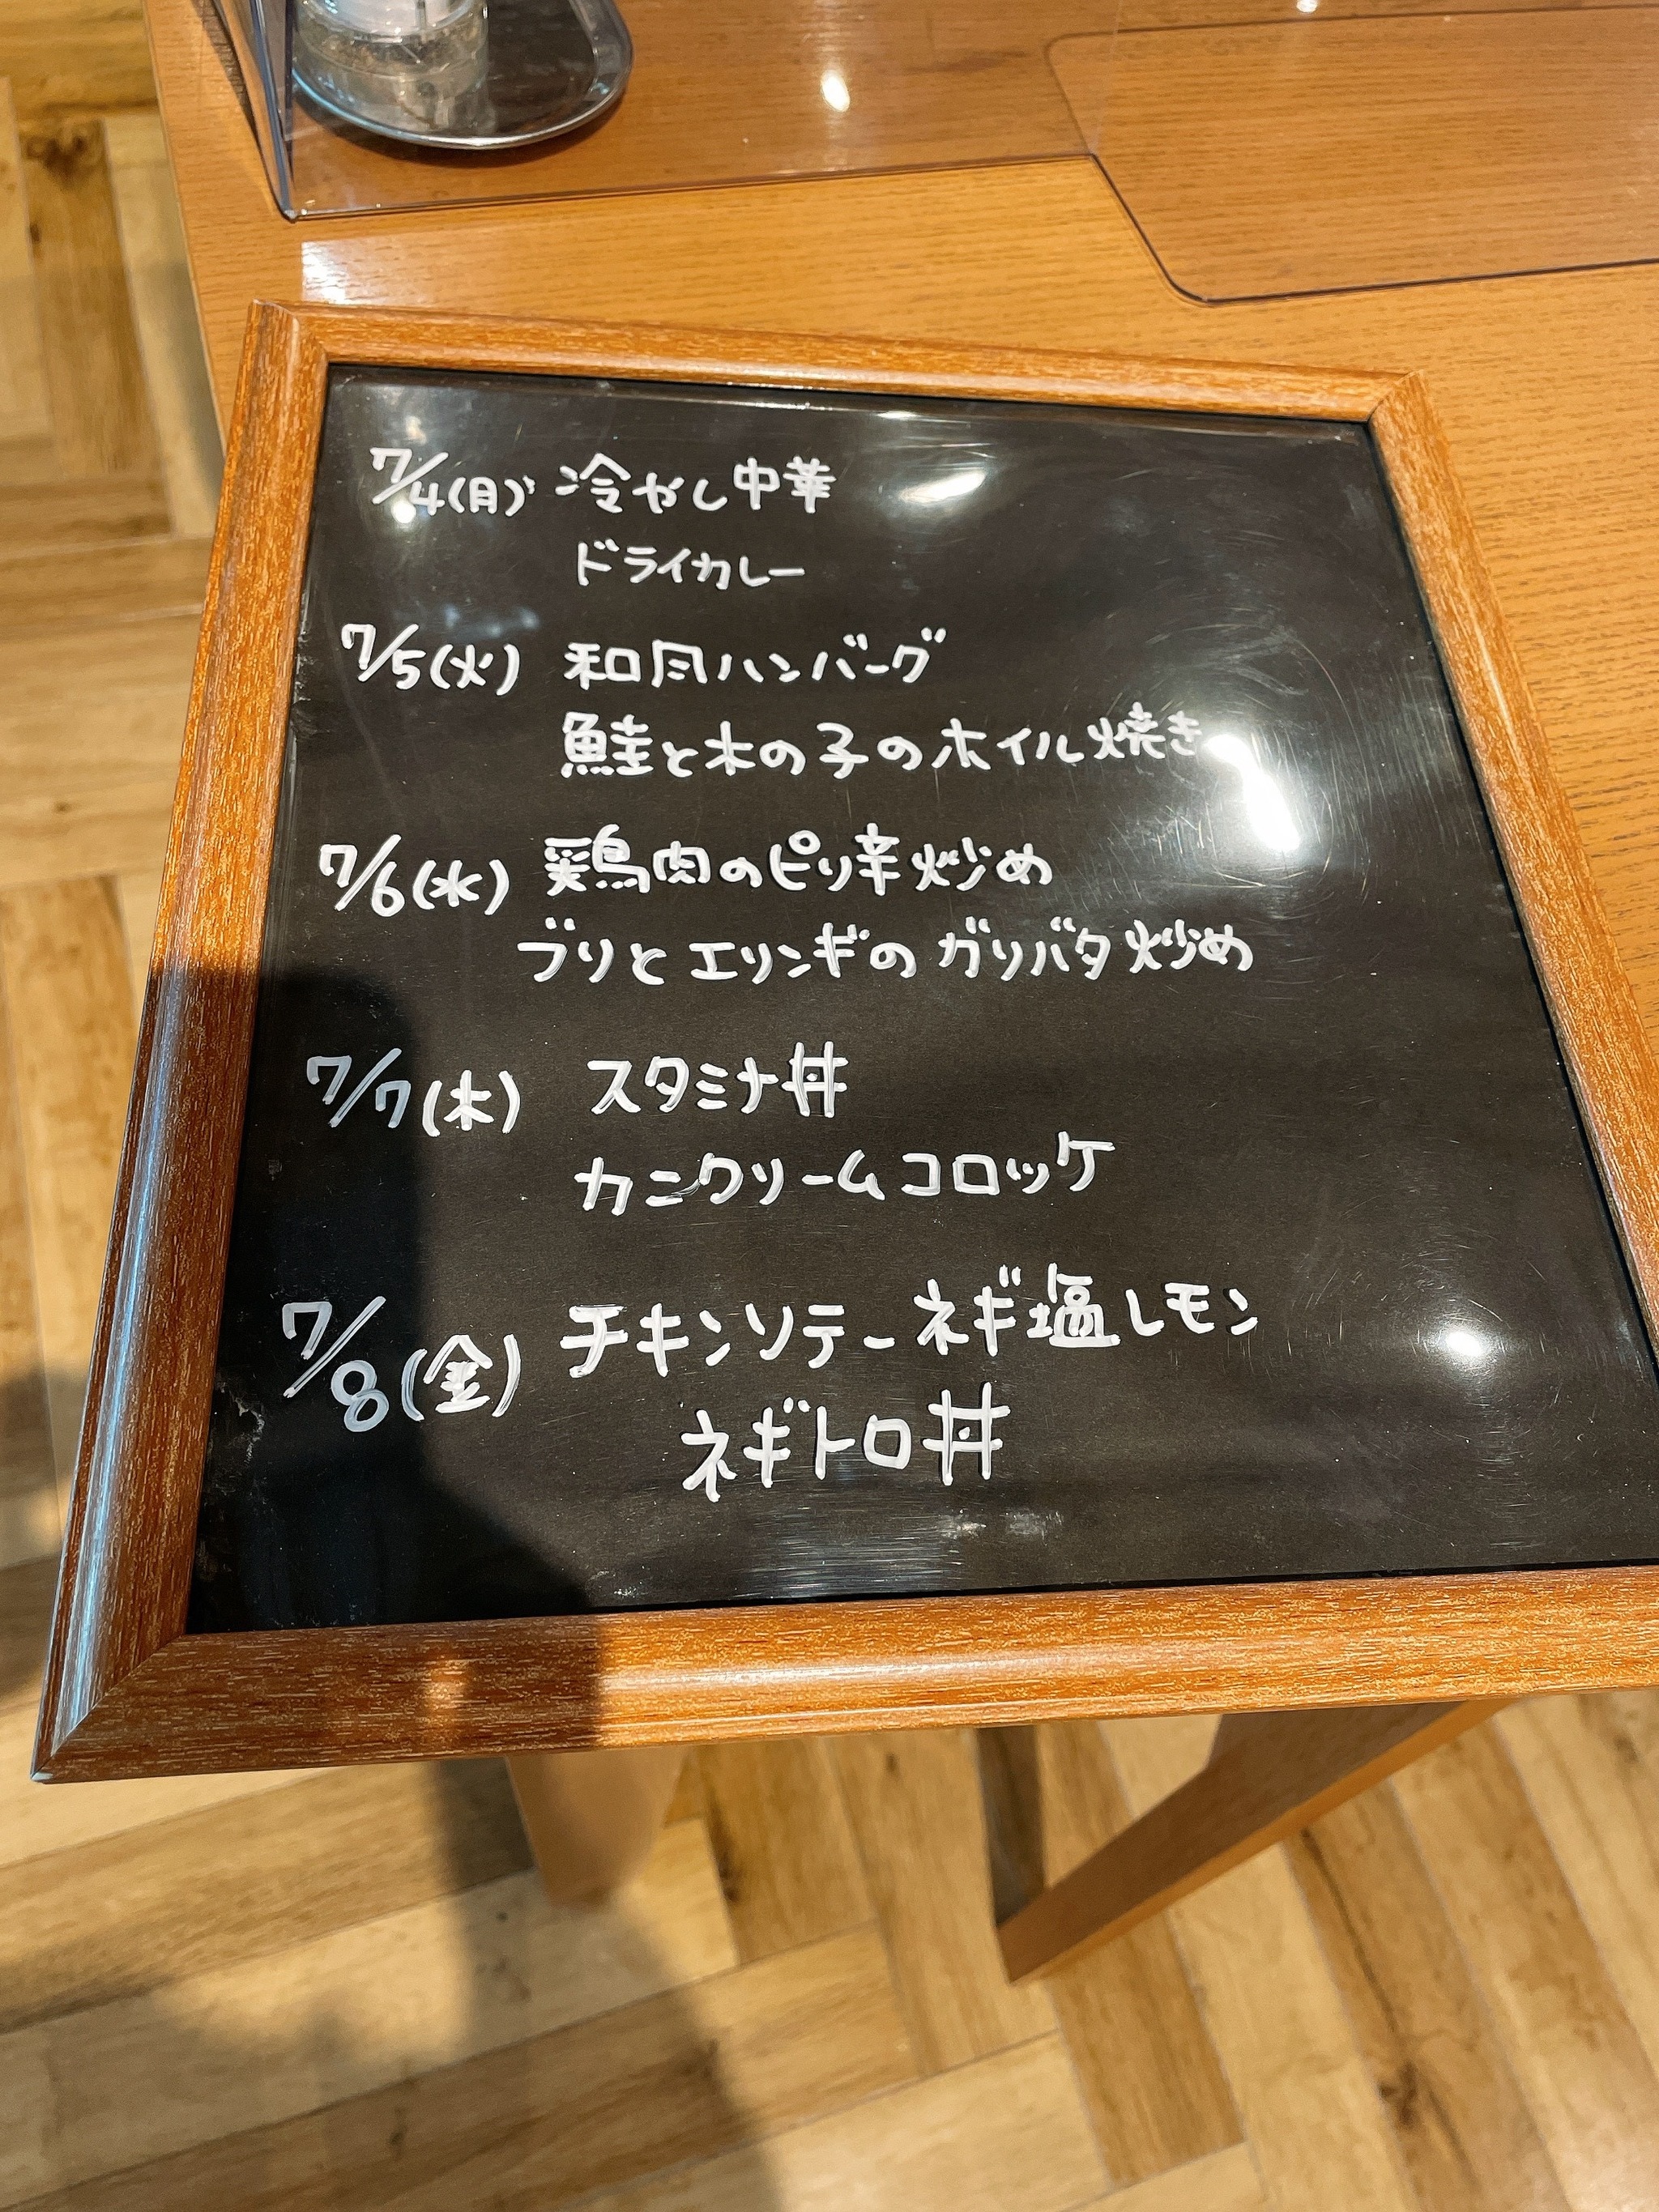 7/4(月) 冷やし中華
ドライカレー
7/5(火) 和風ハンバーグ
鮭と木の子のホイル焼き
7/6(水) 鶏肉のピリ辛炒め
ブリとエリンギのガリバタ炒め
7/7(木) スタミナ丼
カニクリームコロッケ
7/8(金) チキンソテーネギ塩レモン
ネギトロ丼